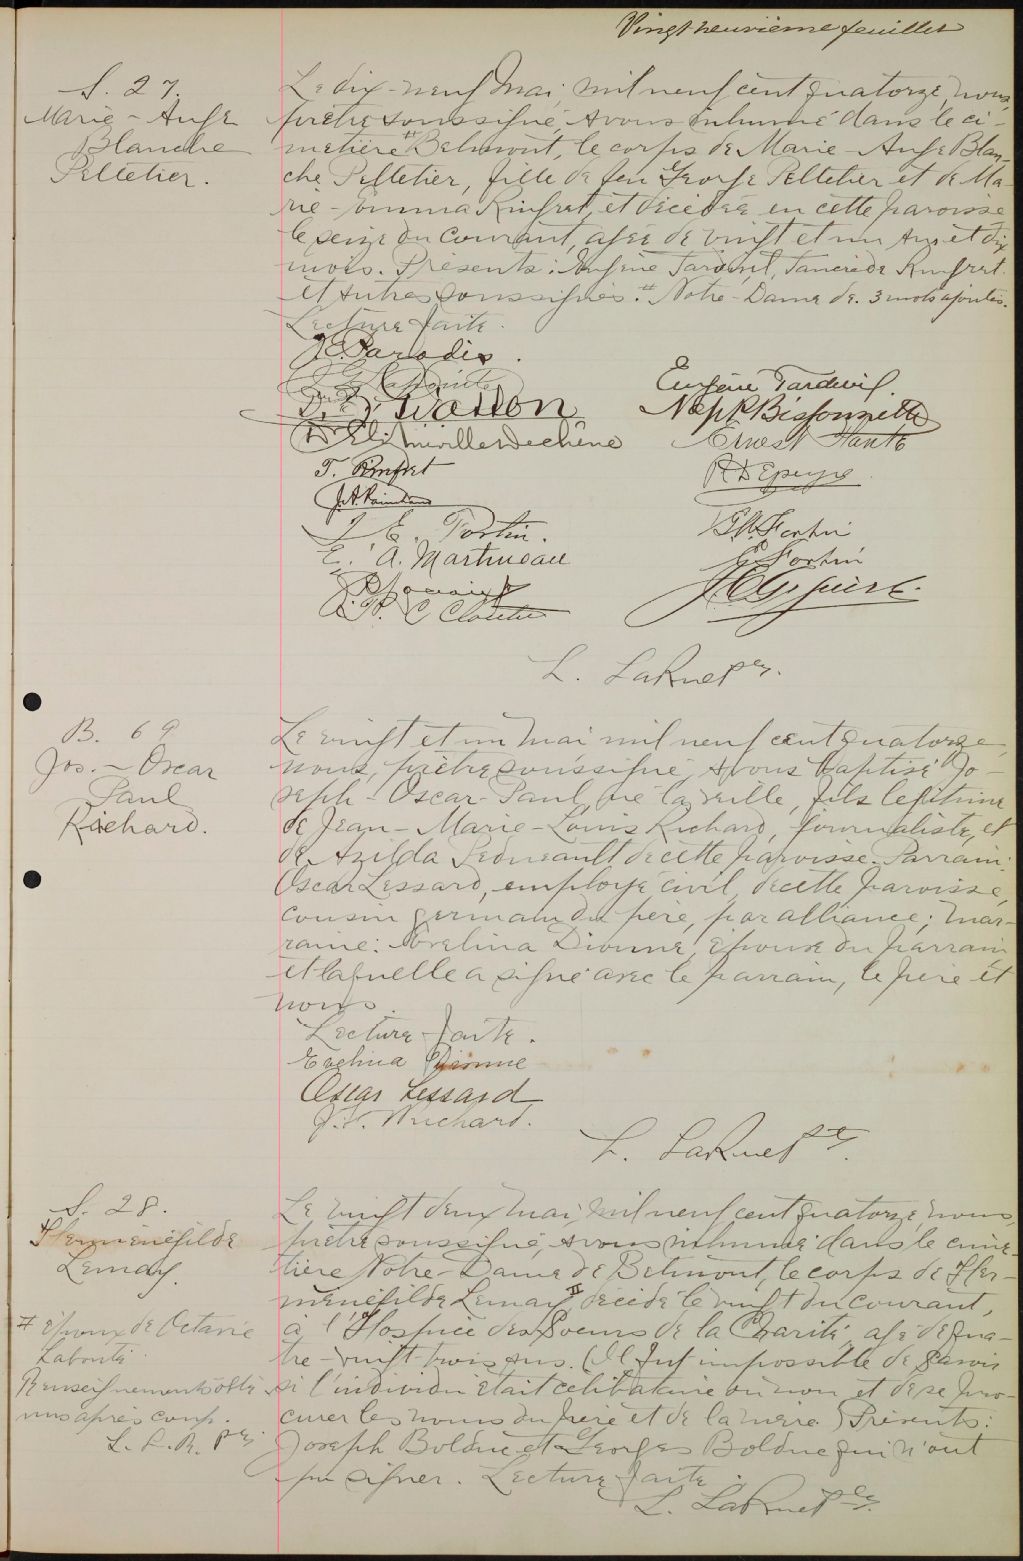 Vingt neuvième feuillet
S. 27.
Marie-Ange
Blanche
Pelletier.
Le dix-neuf Mai, mil neuf cent quatorze, nous,
prêtre soussigné, avons inhumé dans le ci-
metière # Belmont, le corps de Marie-Ange Blan-
che Pelletier, fille de feu George Pelletier et de Ma-
rie-Emma Rinfret, et décédée en cette paroisse
le seize du courant, agée de vingt et un ans et dix
mois. Présents: Eugène Tardivel, Tancrède Rinfret
et autres soussignés. # Notre-Dame de. 3 mots ajoutés.
Lecture faite.
Paradis.
Eugène Tardivel
Nap. P. Bissonnette
Déchêne
Ernest
T. Rinfret
J. E. Fortin.
Fortin
E. A. Martineau
E. Fortin
C Cloutier
L. LaRue ptre.
B. 69
Jos.-Oscar
Paul
Richard.
Le vingt et un Mai mil neuf cent quatorze,
nous, prêtre soussigné, avons baptisé Jo-
seph-Oscar-Paul, né la veille, fils légitime
de Jean-Marie-Louis Richard, journaliste, et
de Azilda Ledneault de cette paroisse. Parrain:
Oscar Lessard, employé civil, de cette paroisse,
cousin germain du père, par alliance; mar-
raine: Evelina Dionne, épouse du parrain
et laquelle a signé avec le parrain, le père et
nous.
Lecture faite.
Evelina Dionne
Oscar Lessard
Richard.
L. LaRue ptre.
S. 28.
Herménégilde
Lemay.
# époux de Octavie
Labonté.
Renseignements obte
nus après coup.
L. L. R. ptre.
Le vingt deux Mai, mil neuf cent quatorze, nous,
prêtre soussigné, avons inhumé dans le cime-
tière Notre-Dame de Belmont, le corps de Her-
ménégilde Lemay #, décédé le vingt du courant,
à l'Hospice des Soeurs de la Charité, agé de qua-
tre-vingt-trois ans. (Il fut impossible de savoir
si l'individu était célibataire ou non et de se pro-
curer les noms du père et de la mère.) Présents:
Joseph Bolduc et Georges Bolduc qui n'ont
pu signer. Lecture faite.
L. LaRue ptre.